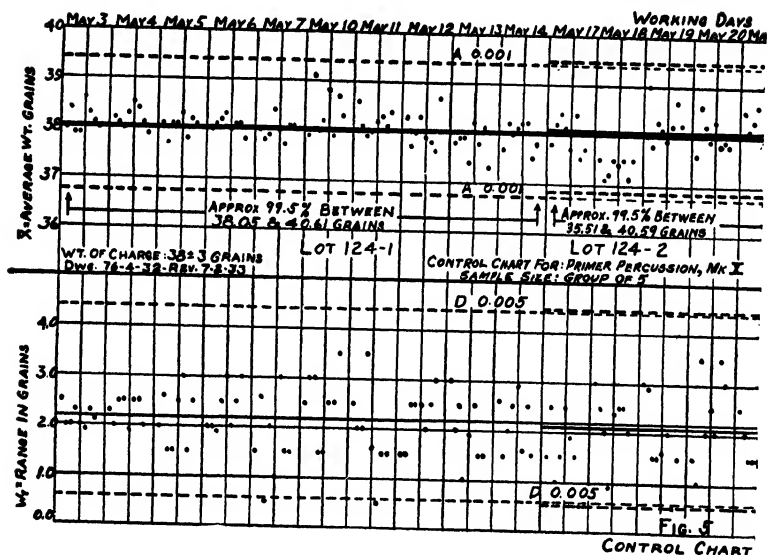 WORKING DAYS
MAY 3 MAY 4 MAY 5 MAY 6 MAY 7 MAY 10 MAY 11 MAY 12 MAY 13 MAY 14 MAY 17 MAY 18 MAY 19 MAY 20 MAY
40
A 0.001
39
38
37
A 0.001
36
X̄=AVERAGE WT. GRAINS
APPROX 99.5% BETWEEN
38.05 & 40.61 GRAINS
APPROX. 99.5% BETWEEN
35.51 & 40.59 GRAINS
LOT 124-1
LOT 124-2
WT. OF CHARGE: 38±3 GRAINS
DWG. 76-4-32-REV. 7-2-33
CONTROL CHART FOR: PRIMER PERCUSSION, MK X
SAMPLE SIZE: GROUP OF 5
D 0.005
4.0
3.0
2.0
1.0
D 0.005
0.0
RANGE IN GRAINS
FIG. 5
CONTROL CHART